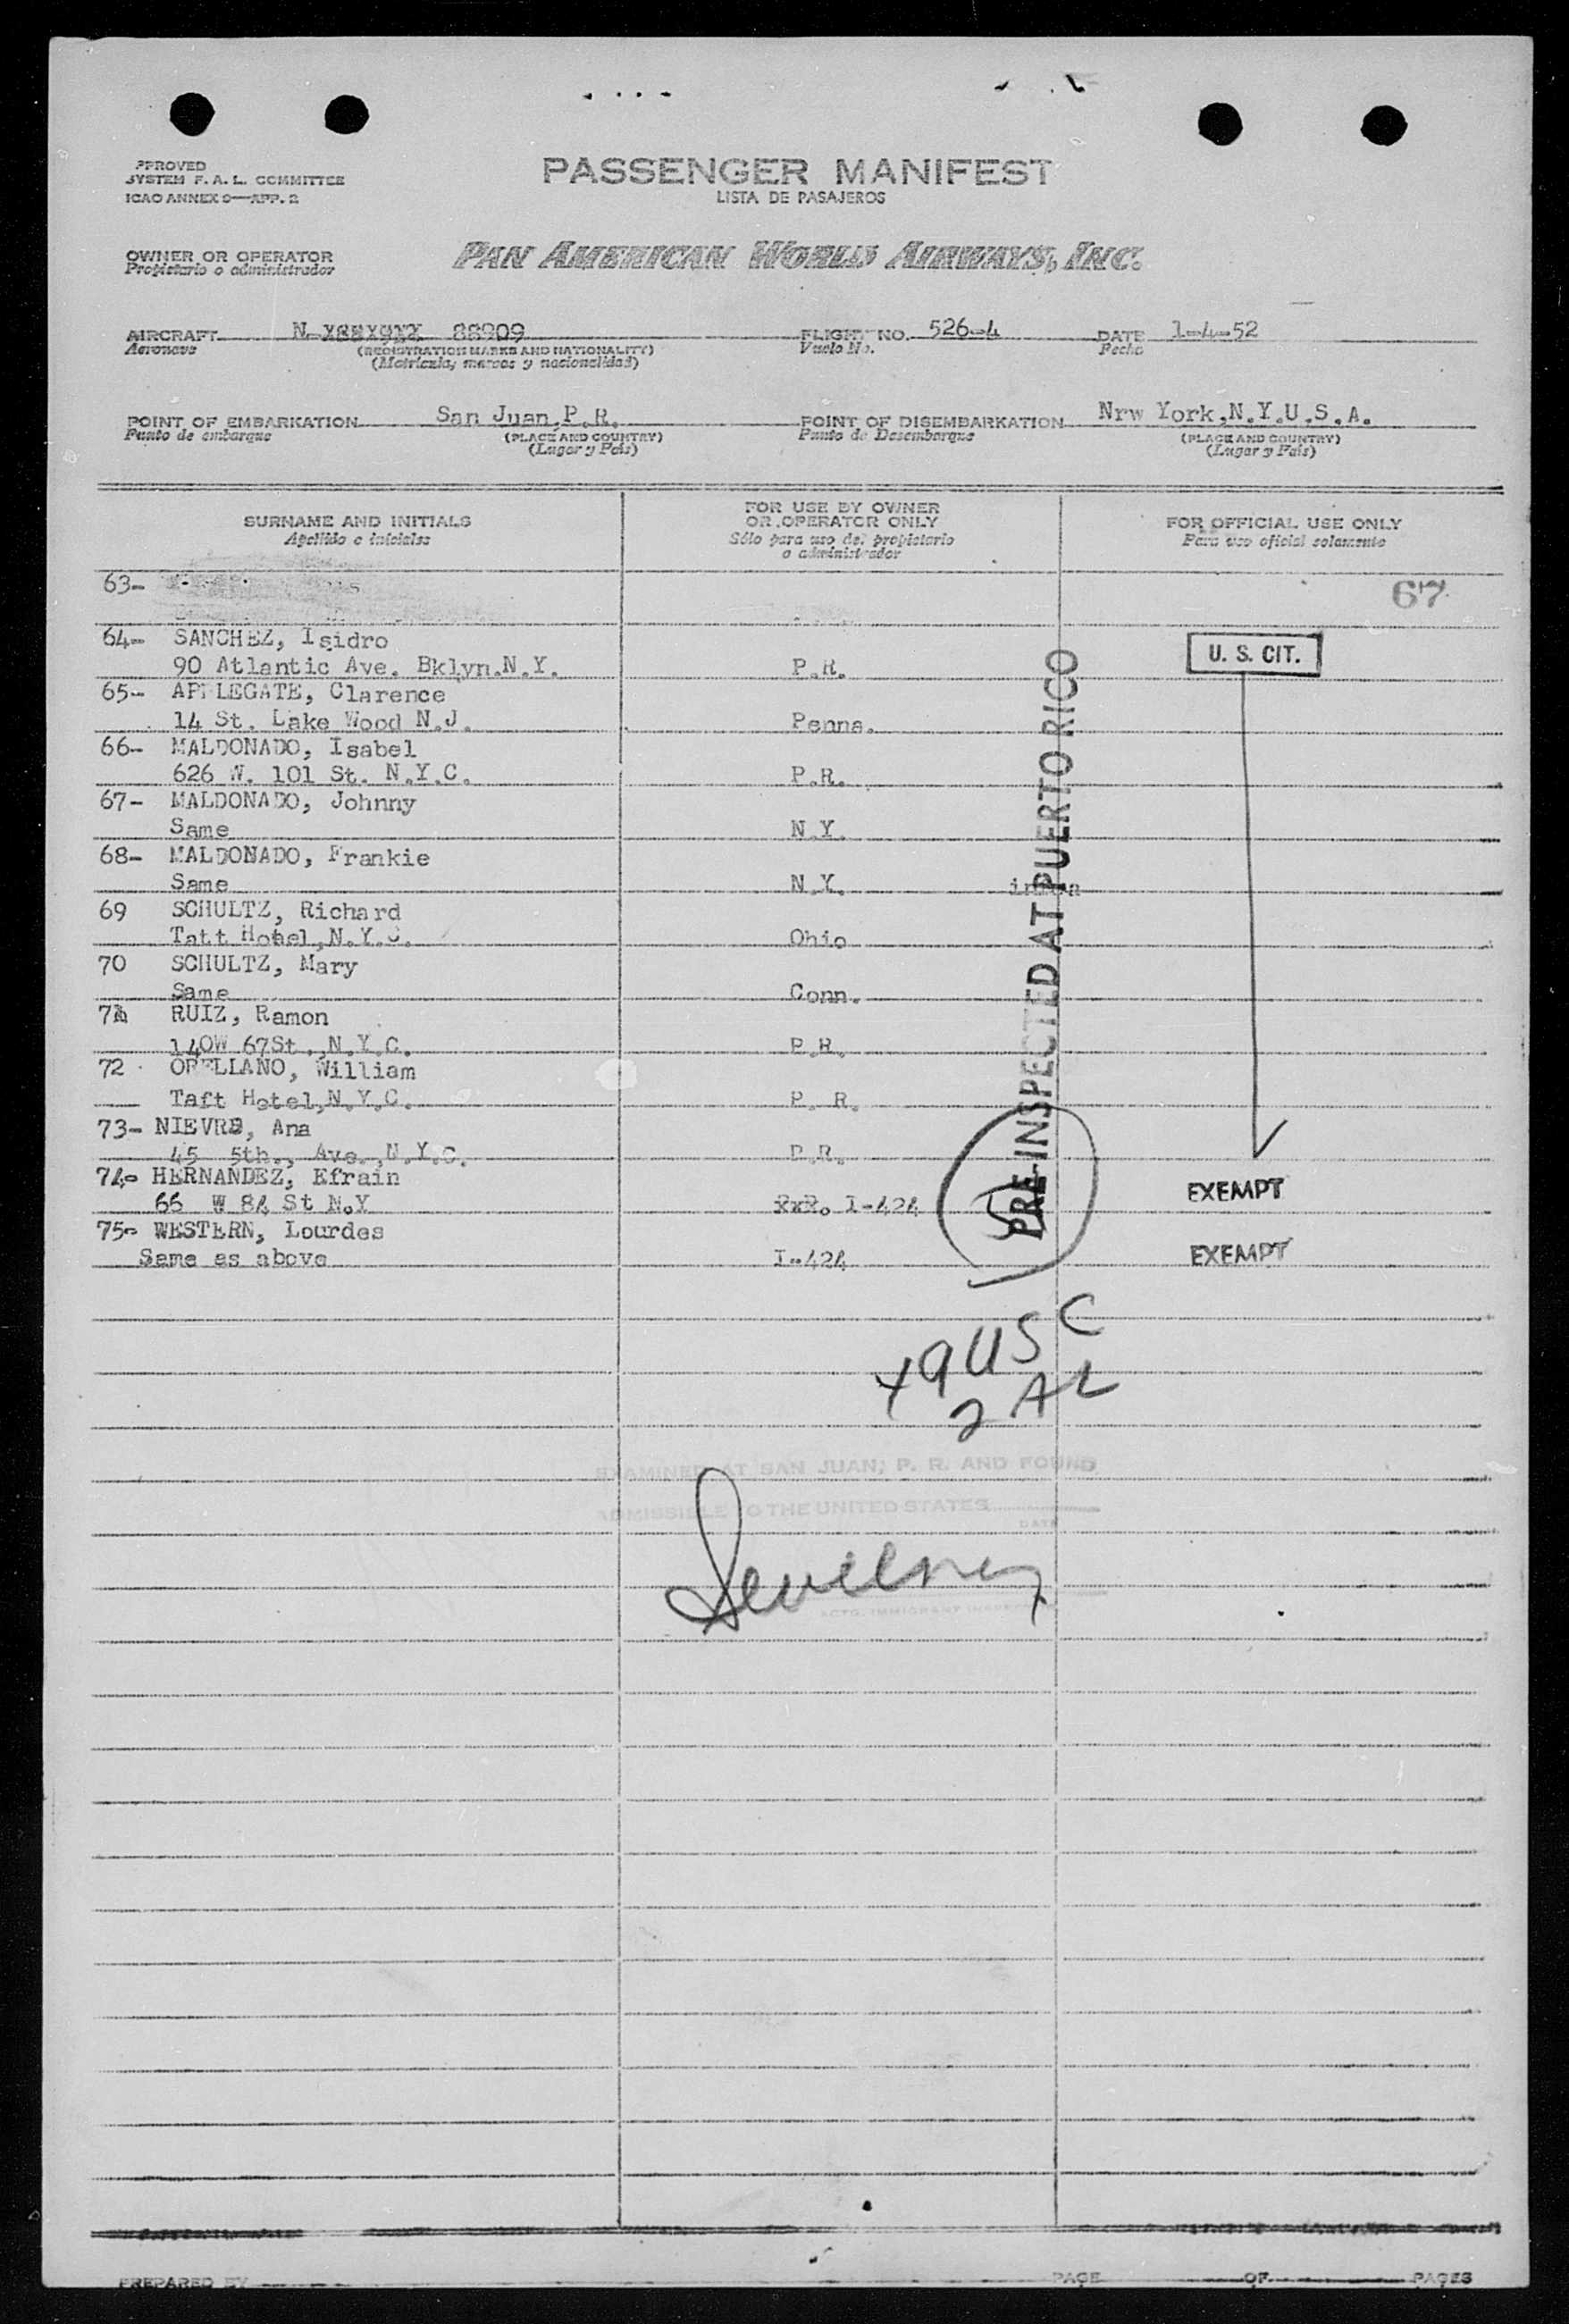 PPROVED
SYSTEM F. A. L. COMMITTEE
ICAO ANNEX 9—APP. 2
PASSENGER MANIFEST
LISTA DE PASAJEROS
OWNER OR OPERATOR
Propietario o administrador
PAN AMERICAN WORLD AIRWAYS, INC.
AIRCRAFT N 88909 FLIGHT NO. 526-4 DATE 1-4-52
Aeronave (REGISTRATION MARKS AND NATIONALITY) Vuelo No. Fecha
(Matrícula, marcas y nacionalidad)
POINT OF EMBARKATION San Juan,P.R. POINT OF DISEMBARKATION Nrw York,N.Y.U.S.A.
Punto de embarque (PLACE AND COUNTRY) Punto de Desembarque (PLACE AND COUNTRY)
(Lugar y País) (Lugar y País)
SURNAME AND INITIALS
Apellido e iniciales
FOR USE BY OWNER
OR OPERATOR ONLY
Sólo para uso del propietario
o administrador
FOR OFFICIAL USE ONLY
Para uso oficial solamente
63-
67
64- SANCHEZ, Isidro
90 Atlantic Ave. Bklyn.N.Y. P.R.
U. S. CIT.
65- APPLEGATE, Clarence
14 St. Lake Wood N.J. Penna.
66- MALDONADO, Isabel
626 W. 101 St. N.Y.C. P.R.
67- MALDONADO, Johnny
Same N.Y.
68- MALDONADO, Frankie
Same N.Y.
69 SCHULTZ, Richard
Tatt Hotel,N.Y.C. Ohio
70 SCHULTZ, Mary
Same Conn.
71 RUIZ, Ramon
140W 67St.,N.Y.C. P.R.
72 ORELLANO, William
Taft Hotel,N.Y.C. P. R.
73- NIEVRS, Ana
45 5th., Ave.,N.Y.C. P.R.
74- HERNANDEZ, Efrain
66 W 84 St N.Y I-424 EXEMPT
75- WESTERN, Lourdes
Same as above I-424 EXEMPT
PRE-INSPECTED AT PUERTO RICO
9 USC
2 AL
EXAMINED AT SAN JUAN, P. R. AND FOUND
ADMISSIBLE TO THE UNITED STATES
DATE
ACTG. IMMIGRANT INSPECTOR
PREPARED BY PAGE OF PAGES